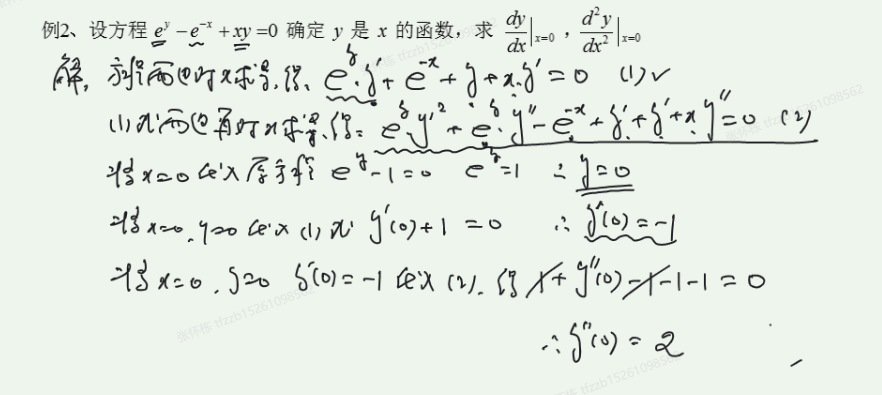 例2、设方程 e^y - e^{-x} + xy = 0 确定 y 是 x 的函数，求 dy/dx|_{x=0}，d²y/dx²|_{x=0}
解，方程两边对x求导,得、e^y·y' + e^{-x} + y + x·y' = 0 (1) √
(1)式两边再对x求导,得: e^y·y'² + e^y·y'' - e^{-x} + y' + y' + x·y'' = 0 (2)
将x=0代入原方程 e^y - 1 = 0 e^y = 1 ∴ y = 0
将x=0、y=0代入(1)式 y'(0) + 1 = 0 ∴ y'(0) = -1
将x=0、y=0 y'(0) = -1代入(2).得 1 + y''(0) - 1 - 1 - 1 = 0
∴ y''(0) = 2
张怀栋 tfzzb15261098562